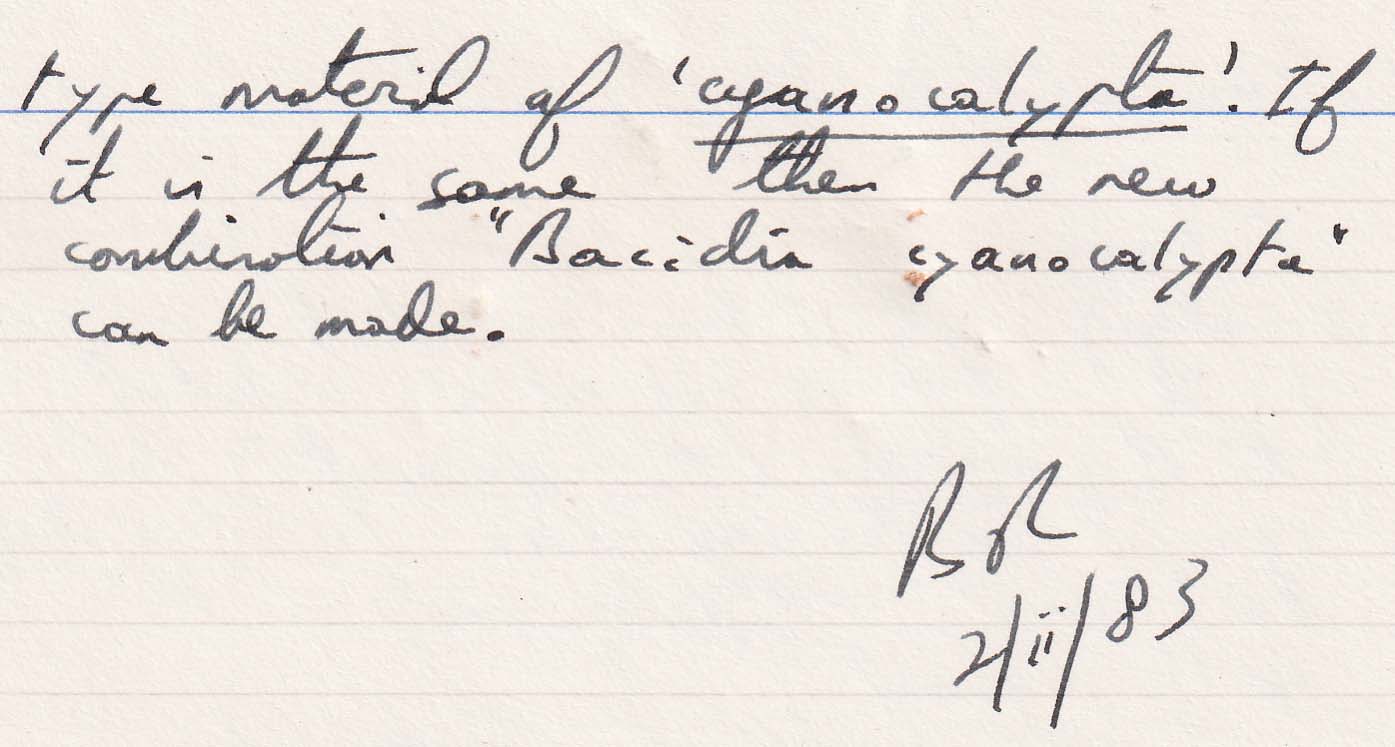 type material of 'cyanocalypta'. If
it is the same then the new
combination "Bacidia cyanocalypta"
can be made.
2/ii/83